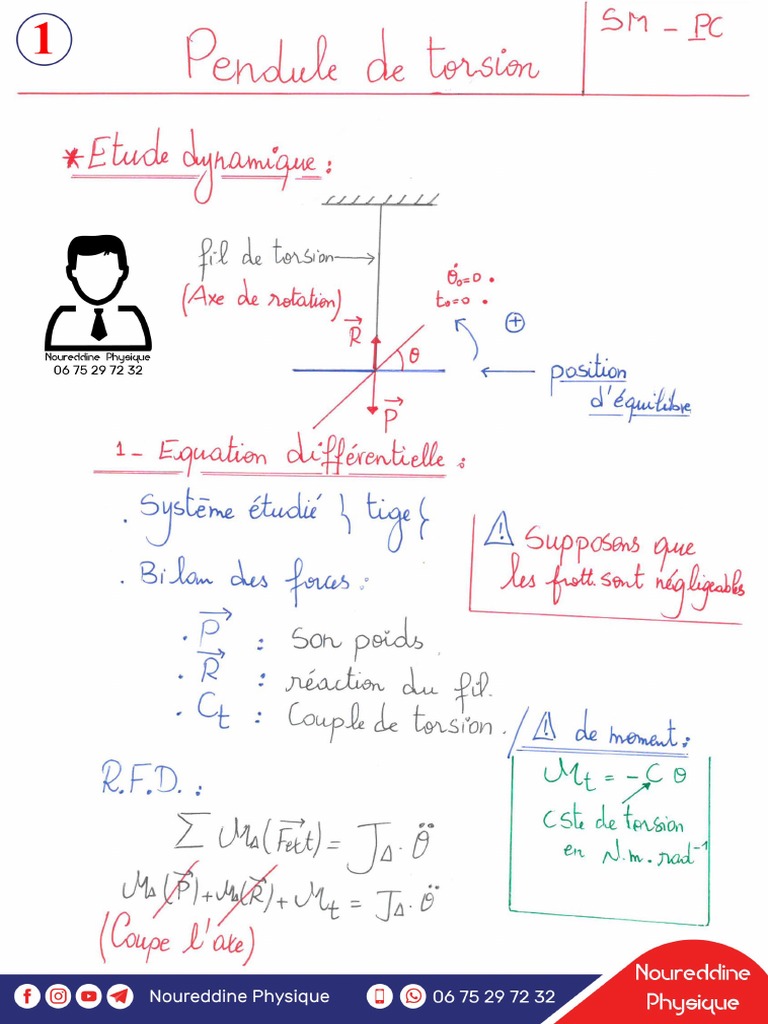 1
Pendule de torsion
SM - PC
* Etude dynamique :
fil de torsion
(Axe de rotation)
θ̇₀=0 .
t₀=0 .
+
R
θ
P
position
d'équilibre
Noureddine Physique
06 75 29 72 32
1- Equation différentielle :
. Système étudié } tige {
⚠ Supposons que
les frott. sont négligeables
. Bilan des forces :
. P⃗ : Son poids.
. R⃗ : réaction du fil.
. Ct : Couple de torsion.
⚠ de moment :
Mt = -C θ
Cste de torsion
en N.m.rad⁻¹
R.F.D. :
Σ M∆(F⃗ext) = J∆.θ̈
M∆(P⃗)+M∆(R⃗)+Mt = J∆.θ̈
(Coupe l'axe)
Noureddine Physique
06 75 29 72 32
Noureddine
Physique